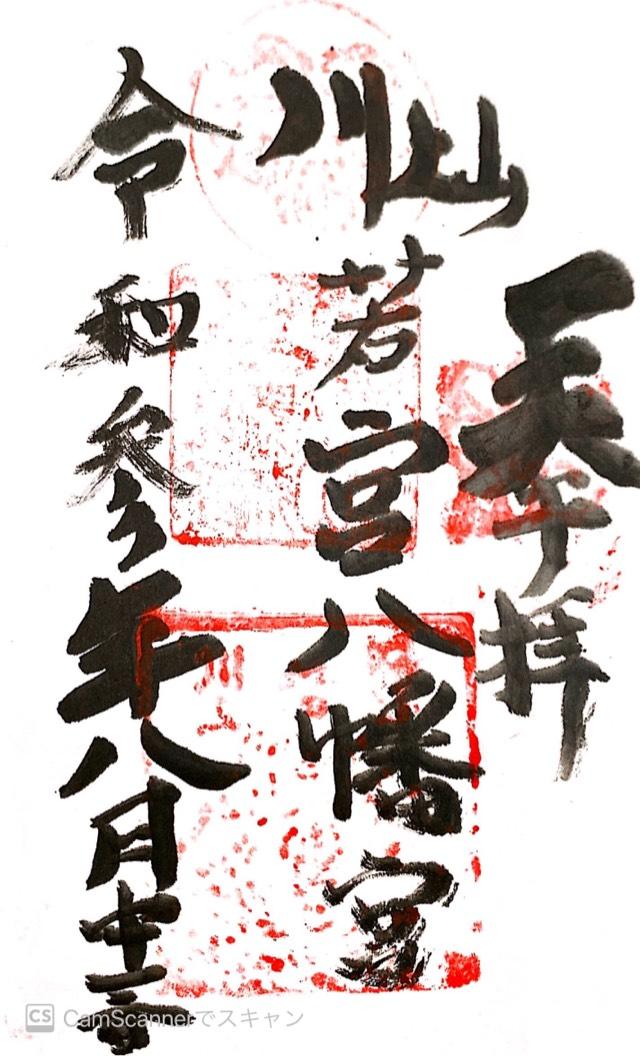 奉拝
川
若宮八幡宮
令和参年八月
CS CamScannerでスキャン